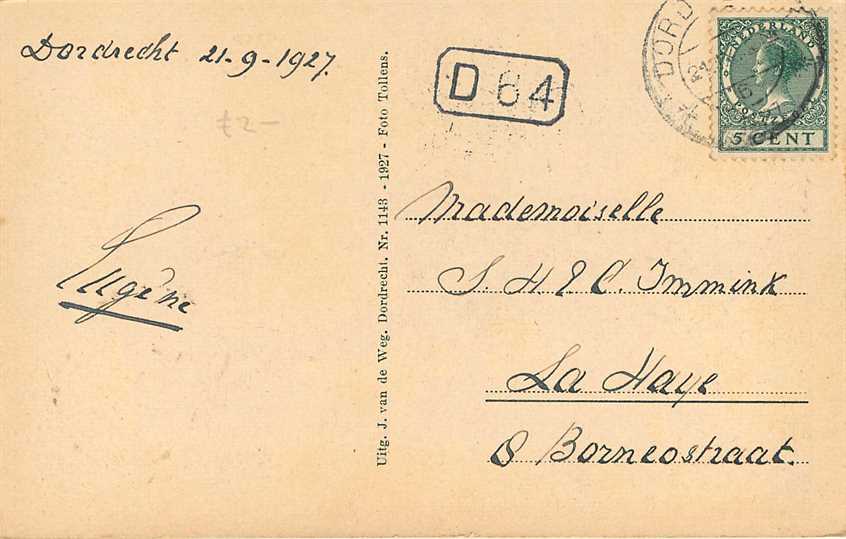 Dordrecht 21-9-1927.
£2-
Eugène
Uitg. J. van de Weg. Dordrecht. Nr. 1143 - 1927 - Foto Tollens.
D 64
DORD
NEDERLAND
5 CENT
Mademoiselle
S. H & C. Immink
La Haye
8 Borneostraat.